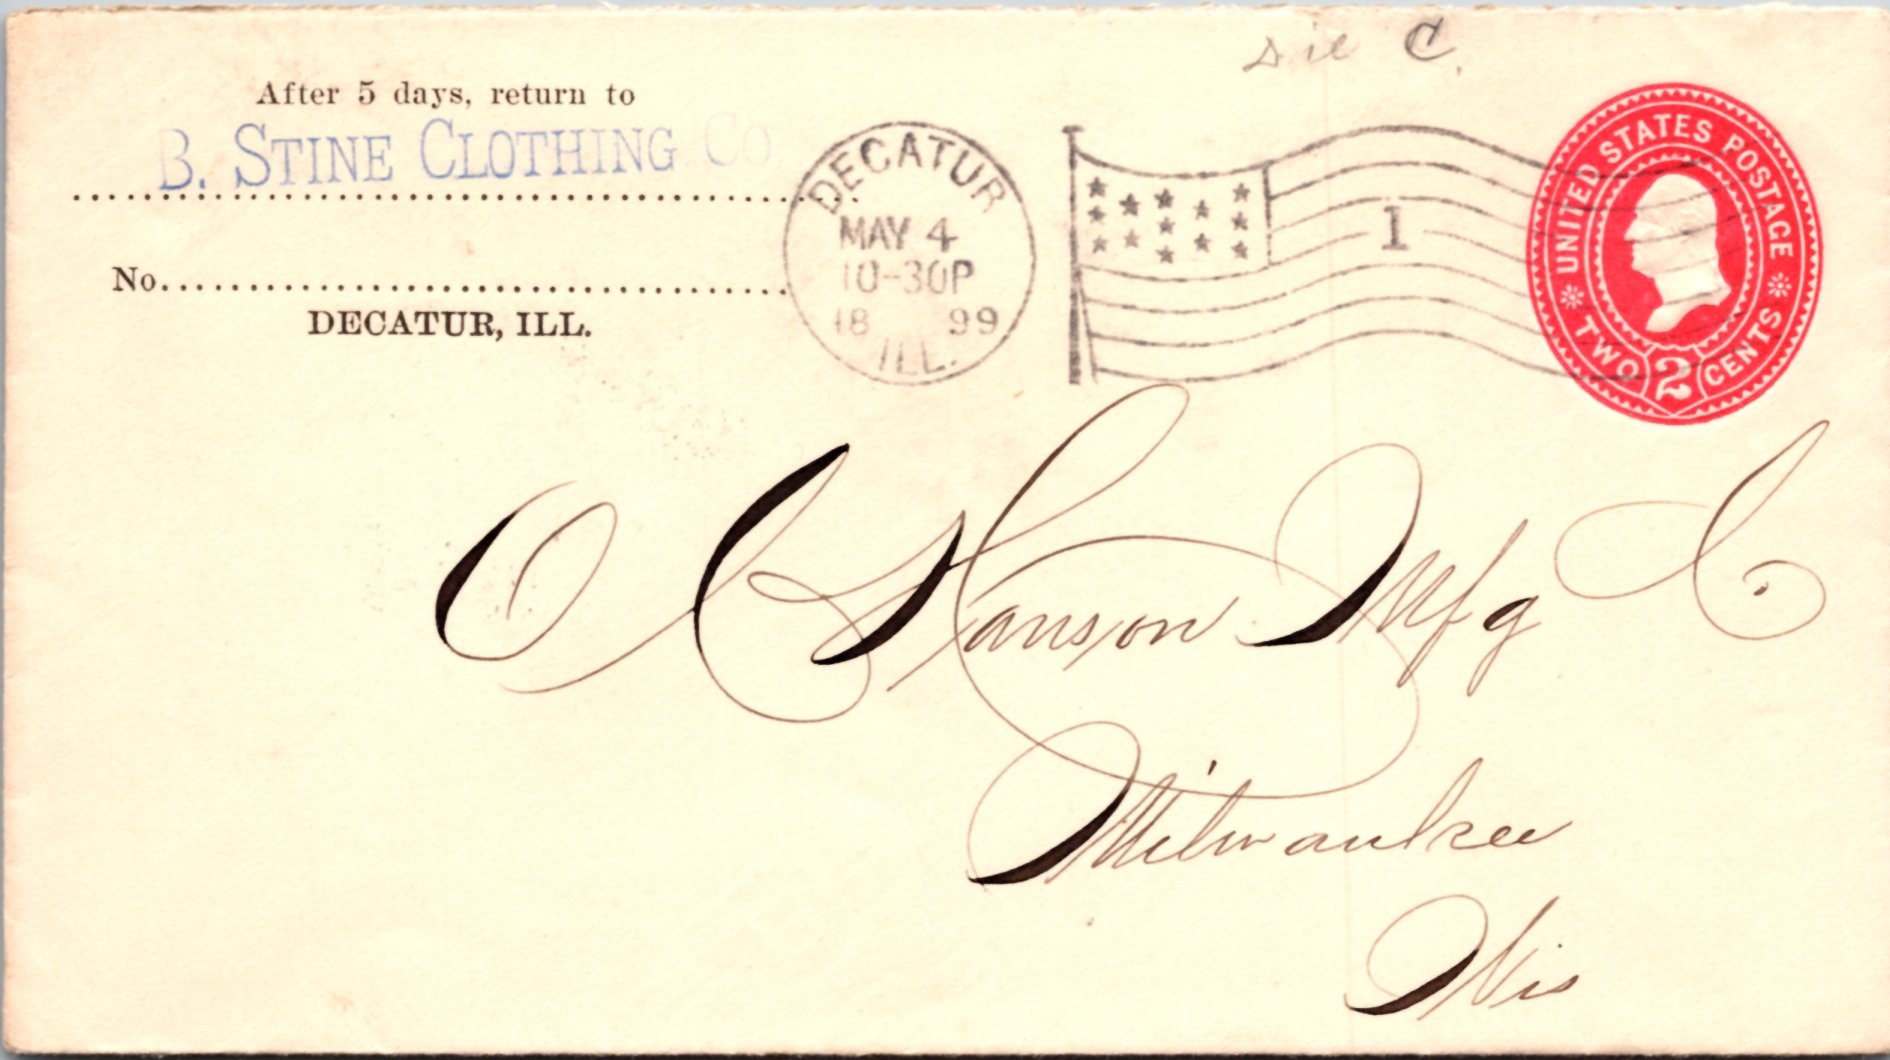 After 5 days, return to
B. STINE CLOTHING Co
No.
DECATUR, ILL.
DECATUR
MAY 4
10-30P
18 99
ILL.
1
UNITED STATES POSTAGE
TWO 2 CENTS
Hanson Mfg Co
Milwaukee
Wis